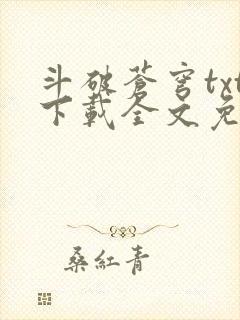 斗破苍穹txt
下载全文免
桑红青